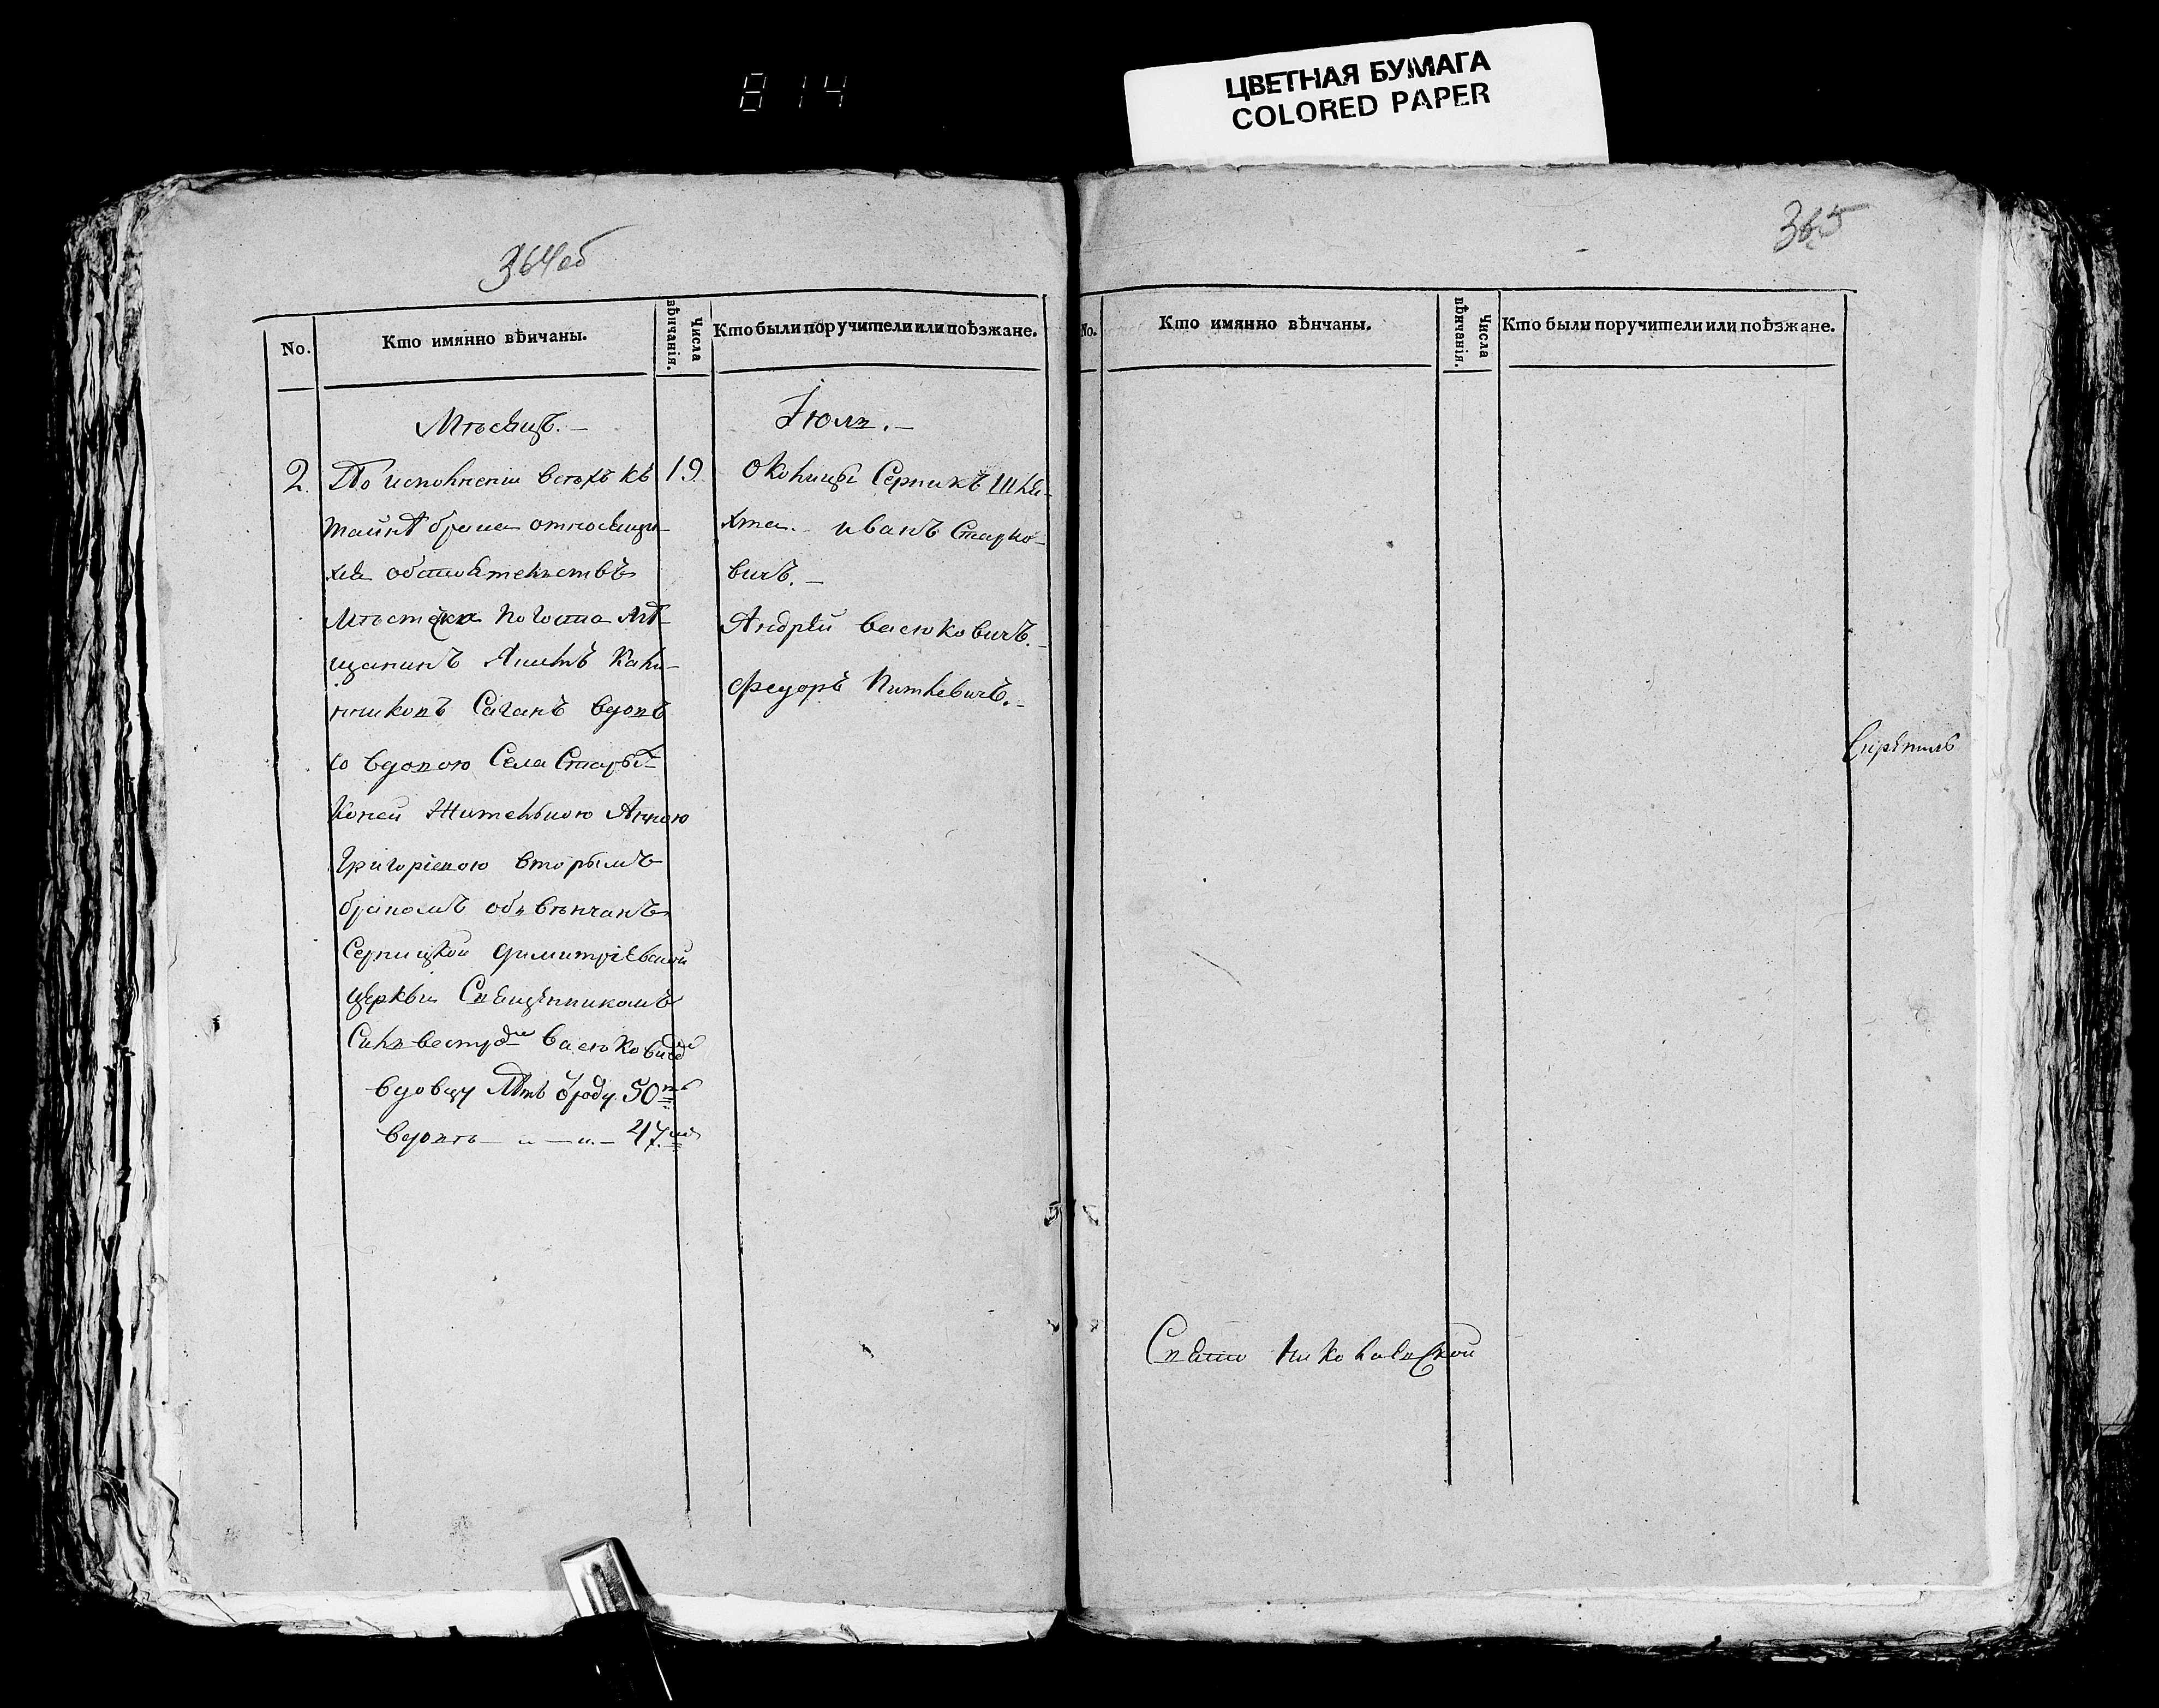 814
ЦВЕТНАЯ БУМАГА
COLORED PAPER
364об
No.
Кто имянно вѣнчаны.
Числа вѣнчанія.
Кто были поручители или поѣзжане.
Мѣсяцъ. —
Іюль. —
2. По исполненіи всѣхъ къ
тайнѣ брака относящи-
хся обстоятельствъ
мѣстечка Погоста мѣ-
щанинъ
никовъ Саганъ вдовъ
со вдовою Села Старыхъ
Коней Жительною Анною
Григоріевою вторымъ
бракомъ обвѣнчанъ
Серницкой Димитріевской
Церкви Священникомъ
Сильвестромъ Васюковичемъ
вдовцу лѣтъ отроду 50ть
вдовѣ — " — " — 47мь
19
околицы Серникъ
Иванъ Старко-
вичъ. —
Андрей Васюковичъ. —
Федоръ Питкевичъ. —
365
No.
Кто имянно вѣнчаны.
Числа вѣнчанія.
Кто были поручители или поѣзжане.
Скрѣпилъ
Свято Николаевской